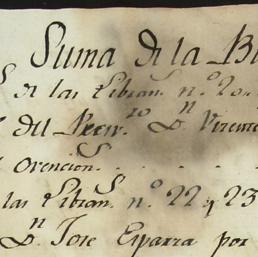 Suma de la
de las Libran.s n.o 20.
del Reciv.ro D.n Vicente
ovencion.s . . . .
las Libran.s n.o 22 y 23
D.n Jose Esparza por